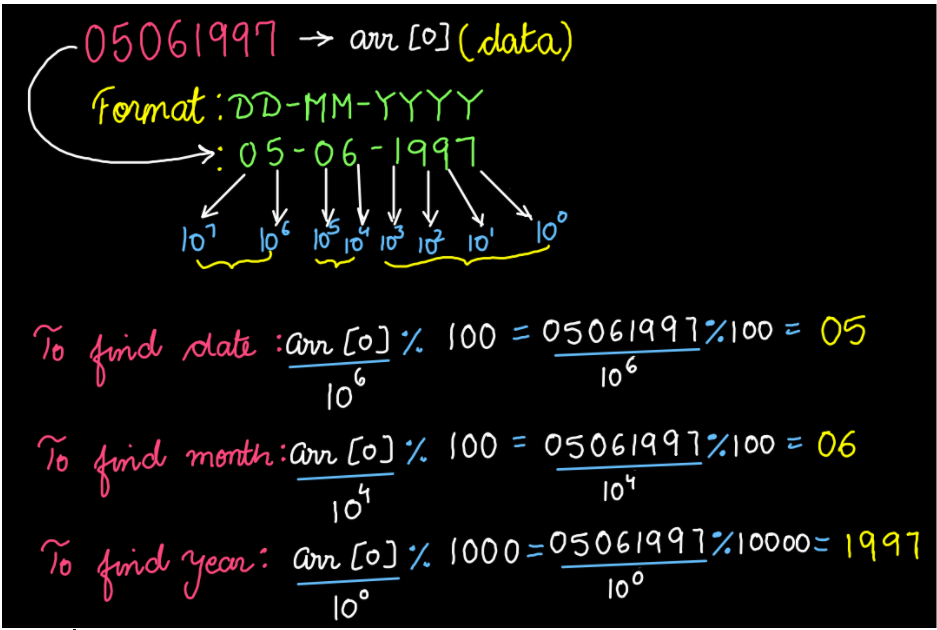 05061997 → arr [0] (data)
Format : DD-MM-YYYY
: 05-06-1997
10⁷ 10⁶ 10⁵ 10⁴ 10³ 10² 10¹ 10⁰
To find date : arr [0] / 10⁶ % 100 = 05061997 / 10⁶ % 100 = 05
To find month : arr [0] / 10⁴ % 100 = 05061997 / 10⁴ % 100 = 06
To find year : arr [0] / 10⁰ % 1000 = 05061997 / 10⁰ % 10000 = 1997